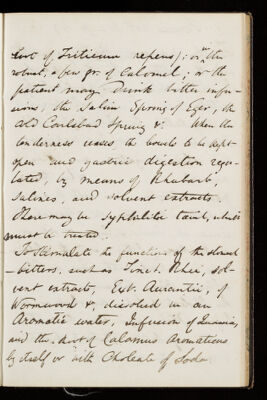 Root of Triticum repens); or in the
robust, a few gr. of Calomel; or the
patient may drink bitter infu-
sions, the Saline Spring of Eger, the
old Carlsbad Spring &c. When the
tenderness ceases the bowels to be kept
open and gastric digestion regu-
lated, by means of Rhubarb,
Salines, and solvent extracts.
There may be Syphilitic taint, which
must be treated.
To stimulate the functions of the stomach
—bitters, such as Tinct. Rhei, sol-
vent extracts, Ext. Aurantii, of
Wormwood &c, dissolved in an
Aromatic water, Infusion of Quassia,
and the root of Calamus Aromaticus
by itself or with Choleate of Soda